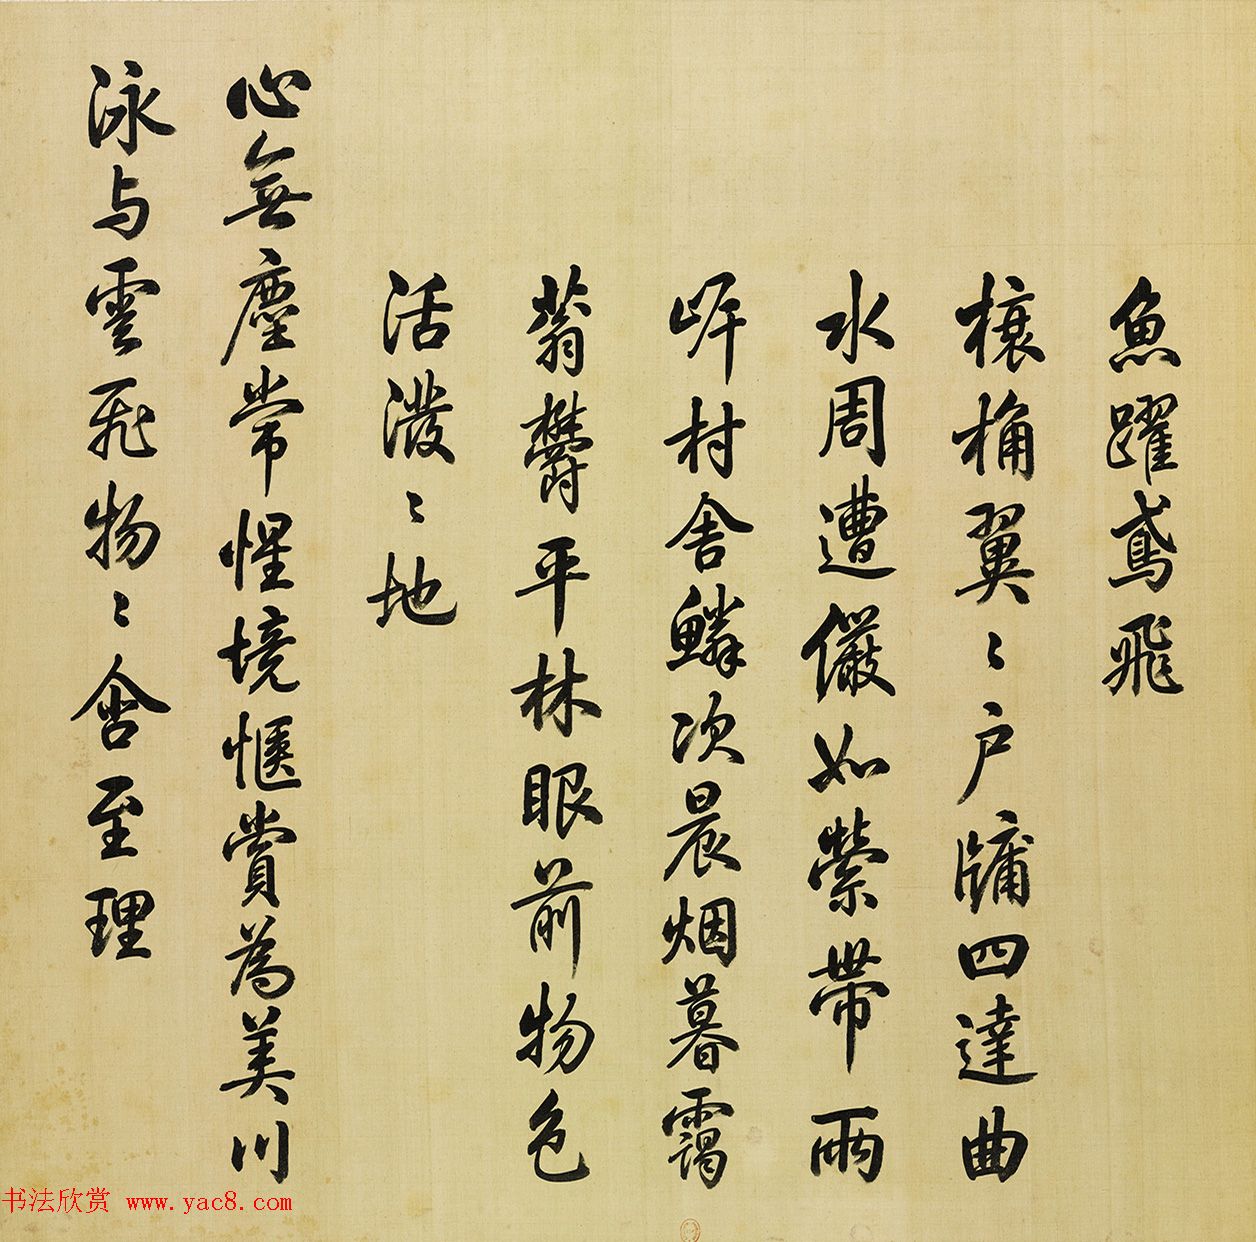 魚躍鳶飛
榱桷翼〻戶牖四達曲
水周遭儼如縈帶兩
岍村舍鱗次晨烟暮靄
蓊欝平林眼前物色
活潑〻地
心無塵常惺境愜賞為美川
泳与雲飛物〻含至理
书法欣赏 www.yac8.com